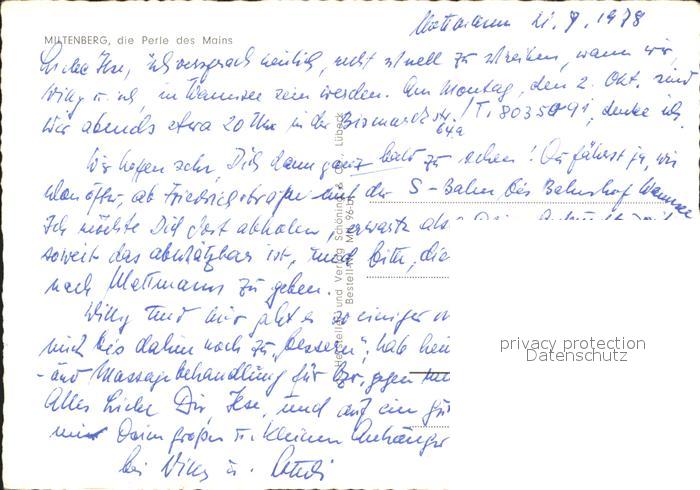 Mottmanns 21.9.1978
MILTENBERG, die Perle des Mains
Liebe Ilse, ich versprach neulich, recht schnell zu schreiben, wann wir,
Willy u. ich, in Wannsee sein werden. Am Montag, den 2. Okt. sind
wir abends etwa 20 Uhr in der Bismarckstr. / T. 8035091, denke ich.
64a
Wir hoffen sehr, Dich dann ganz bald zu sehen! Du fährst ja, wie
schon öfter, ab Friedrichstraße mit der S-Bahn bis Bahnhof Wannsee
Ich möchte Dich dort abholen, erwarte also
soweit das abschätzbar ist, und bitte, die
nach Mottmanns zu geben.
Willy und mir geht es so einiger
mich bis dahin noch zu "bessern", hab
- und Massagebehandlung für gegen
Alles Liebe Dir, Ilse, und auf ein
mit Deinem großen u. kleinen Anhänger
bei Willy u.
Hersteller und Verlag Schöning & Co., Lübeck
Bestell-Nr.
privacy protection
Datenschutz